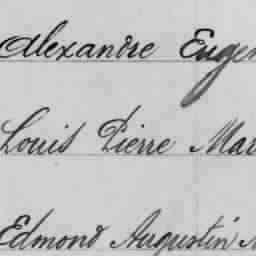 Alexandre Eugen
Louis Pierre Mar
Edmond Augustin